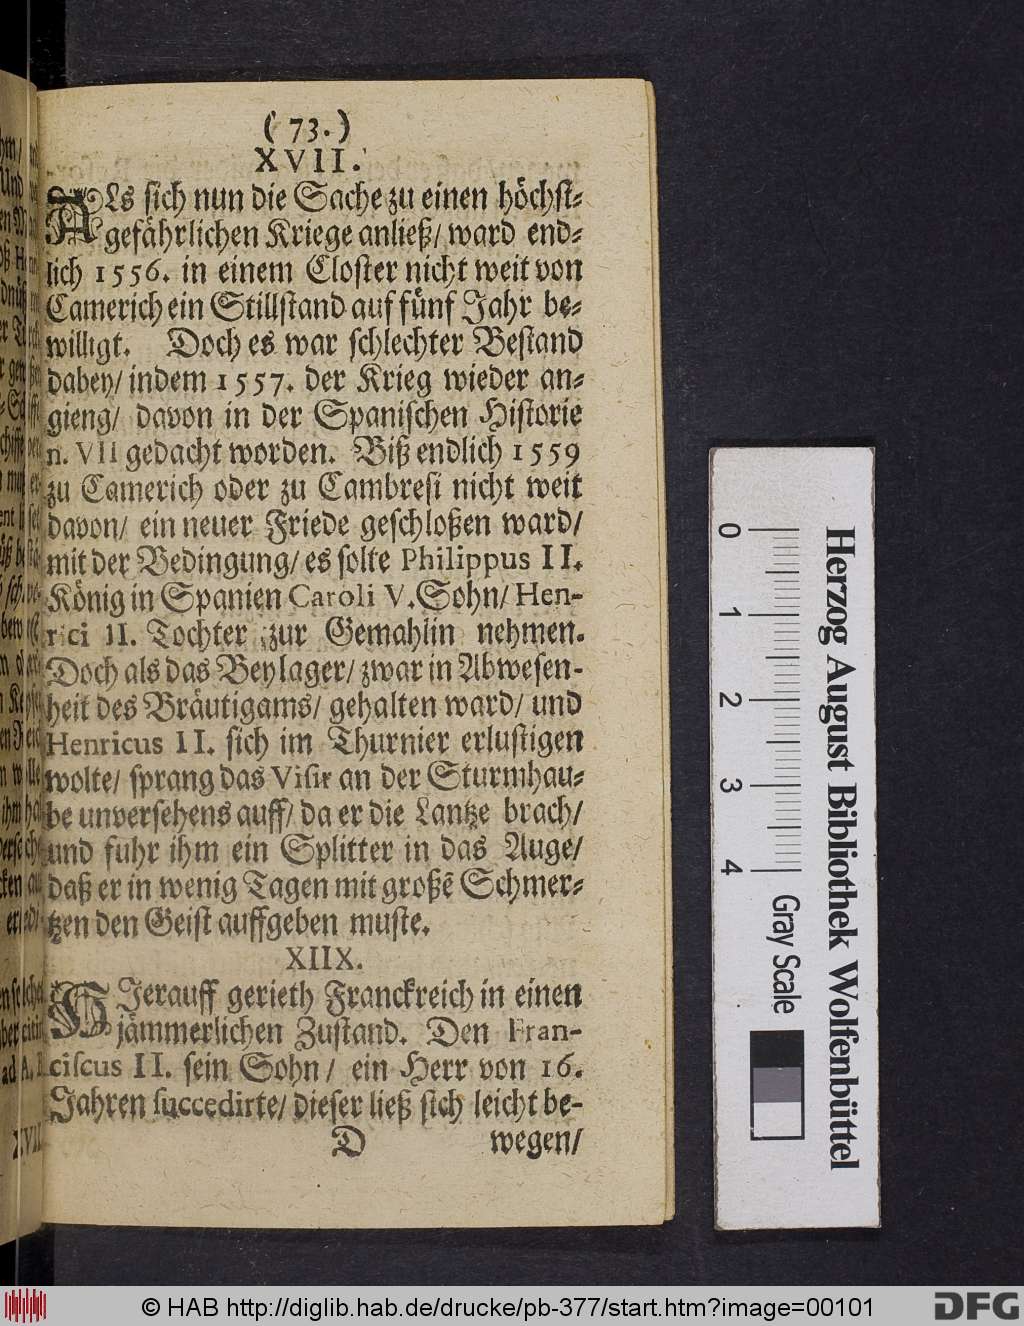 ( 73. )
XVII.
ALs sich nun die Sache zu einen höchst⸗
gefährlichen Kriege anließ/ ward end⸗
lich 1556. in einem Closter nicht weit von
Camerich ein Stillstand auf fünf Jahr be⸗
willigt. Doch es war schlechter Bestand
dabey/ indem 1557. der Krieg wieder an⸗
gieng/ davon in der Spanischen Historie
n. VII gedacht worden. Biß endlich 1559
zu Camerich oder zu Cambresi nicht weit
davon/ ein neuer Friede geschloßen ward/
mit der Bedingung/ es solte Philippus II.
König in Spanien Caroli V. Sohn/ Hen-
rici II. Tochter zur Gemahlin nehmen.
Doch als das Beylager/ zwar in Abwesen-
heit des Bräutigams/ gehalten ward/ und
Henricus II. sich im Thurnier erlustigen
wolte/ sprang das Visir an der Sturmhau⸗
be unversehens auff/ da er die Lantze brach/
und fuhr ihm ein Splitter in das Auge/
daß er in wenig Tagen mit großē Schmer⸗
tzen den Geist auffgeben muste.
XIIX.
HJerauff gerieth Franckreich in einen
jämmerlichen Zustand. Den Fran-
ciscus II. sein Sohn/ ein Herr von 16.
Jahren succedirte/ dieser ließ sich leicht be-
D wegen/
0 1 2 3 4
Gray Scale
Herzog August Bibliothek Wolfenbüttel
© HAB http://diglib.hab.de/drucke/pb-377/start.htm?image=00101
DFG